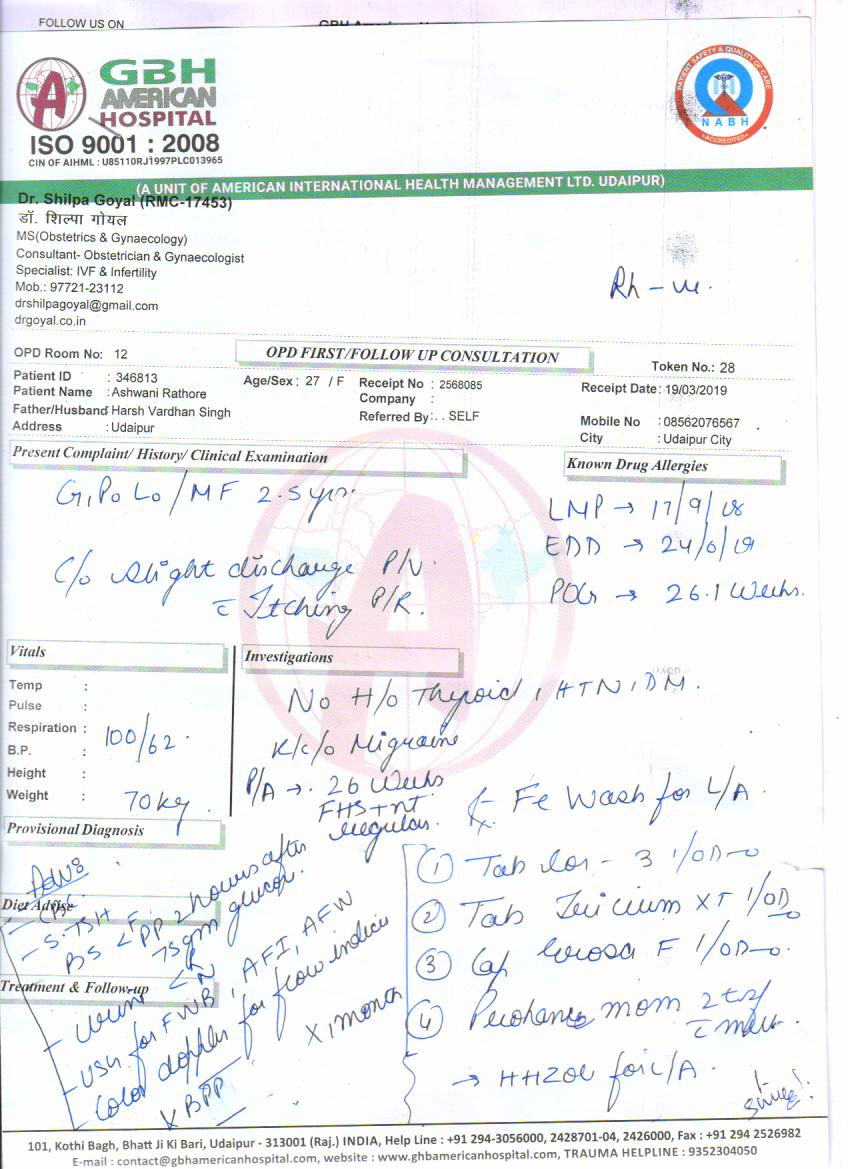 FOLLOW US ON
GBH
AMERICAN
HOSPITAL
ISO 9001 : 2008
CIN OF AIHML : U85110RJ1997PLC013965
PATIENT SAFETY & QUALITY OF CARE
NABH
ACCREDITED
(A UNIT OF AMERICAN INTERNATIONAL HEALTH MANAGEMENT LTD. UDAIPUR)
Dr. Shilpa Goyal (RMC-17453)
डॉ. शिल्पा गोयल
MS(Obstetrics & Gynaecology)
Consultant- Obstetrician & Gynaecologist
Specialist: IVF & Infertility
Mob.: 97721-23112
drshilpagoyal@gmail.com
drgoyal.co.in
Rh - ve.
OPD Room No: 12
OPD FIRST/FOLLOW UP CONSULTATION
Token No.: 28
Patient ID : 346813
Age/Sex : 27 / F
Receipt No : 2568085
Receipt Date: 19/03/2019
Patient Name : Ashwani Rathore
Company :
Father/Husband: Harsh Vardhan Singh
Referred By: . . SELF
Mobile No : 08562076567
Address : Udaipur
City : Udaipur City
Present Complaint/ History/ Clinical Examination
Known Drug Allergies
G1P0L0/MF 2.5 yrs.
LMP → 17/9/18
EDD → 24/6/19
POG → 26.1 Weeks.
C/o slight discharge P/V.
c Itching P/R.
Vitals
Temp :
Pulse :
Respiration :
B.P. :
100/62.
Height :
Weight : 70kg.
Investigations
No H/o Thyroid, HTN, DM.
K/c/o Migraine
P/A → 26 Weeks
FHS+nt
regular.
Provisional Diagnosis
Adv:
Diet Advise
- S.TSH
BS < F
PP 2 hours after
75gm glucose.
Treatment & Follow-up
- Urine < R
N
- USG for FWB, AFI, AFW
Color doppler for flow indices
BPP
X 1 month
Rx V Wash for L/A.
① Tab 1/OD
② Tab XT 1/OD
③ Cap F 1/OD
④ mom 2 tsf
c milk.
→ HHZOLE for L/A.
101, Kothi Bagh, Bhatt Ji Ki Bari, Udaipur - 313001 (Raj.) INDIA, Help Line : +91 294-3056000, 2428701-04, 2426000, Fax : +91 294 2526982
E-mail : contact@gbhamericanhospital.com, website : www.gbhamericanhospital.com, TRAUMA HELPLINE : 9352304050